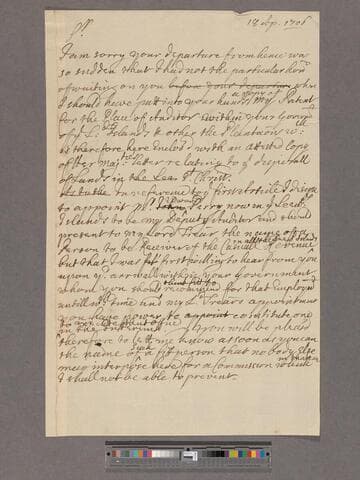 18 Ap. 1706
Sr.
I am sorry your departure from hence was
so sudden that I had not the particular honr
of waiting on you before your departure when
a copy of
I should have put into your hands my Patent
for the Place of Auditor within your Governmt
of ye Leewd Islands & other the Plantations wch
is therefore here enclosed with an attested copy
of her Majtes Letter relating to ye disposall
of Lands in the
As to the In reference to ye first above I design
to appoint Mr John Perry now in ye Leewd
Edward
Islands to be my Deputy Auditor and should
present to my Lord Treasr the name of a
Person to be Receiver of the Casuall Revenue
but that I was first willing to hear from you
upon yr arrivall within your Government
whom you should recommend for that Employmt
think fitt to
untill wch time and my Ld Treasrs appointment
you have power to appoint constitute one
to execute that office
in the Interim. You will be pleased
therefore to lett me know as soon as you can
the name of such a fit person that no body else
may interpose here for a Commission which
in that case
I shall not be able to prevent.